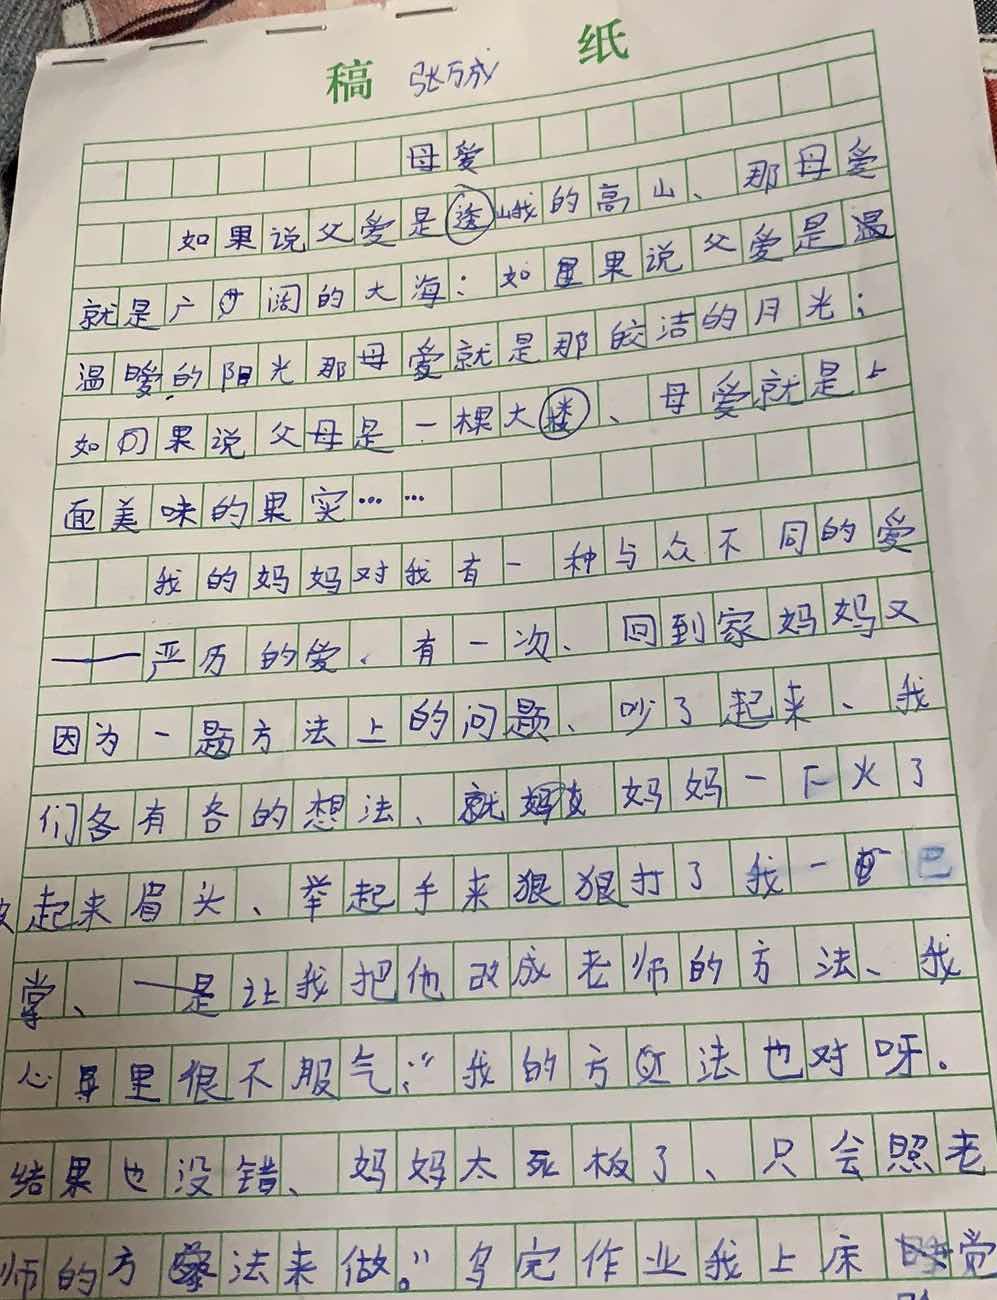 稿 张万成 纸
母爱
如果说父爱是逶峨的高山、那母爱
就是广阔的大海：如果说父爱是温
温暖的阳光那母爱就是那皎洁的月光；
如果说父母是一棵大楼、母爱就是上
面美味的果实……
我的妈妈对我有一种与众不同的爱
——严历的爱、有一次、回到家妈妈又
因为一题方法上的问题、吵了起来、我
们各有各的想法、就 妈妈一下火了
起来眉头、举起手来狠狠打了我一巴
掌、一是让我把他改成老师的方法、我
心里很不服气：“我的方法也对呀。
结果也没错、妈妈太死板了、只会照老
师的方法来做。”写完作业我上床睡觉